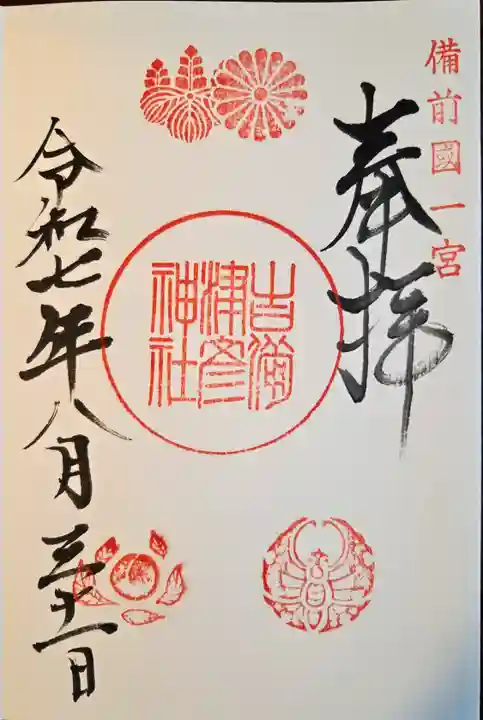 備前國一宮
奉拝
吉備
津彦
神社
令和七年八月三十一日